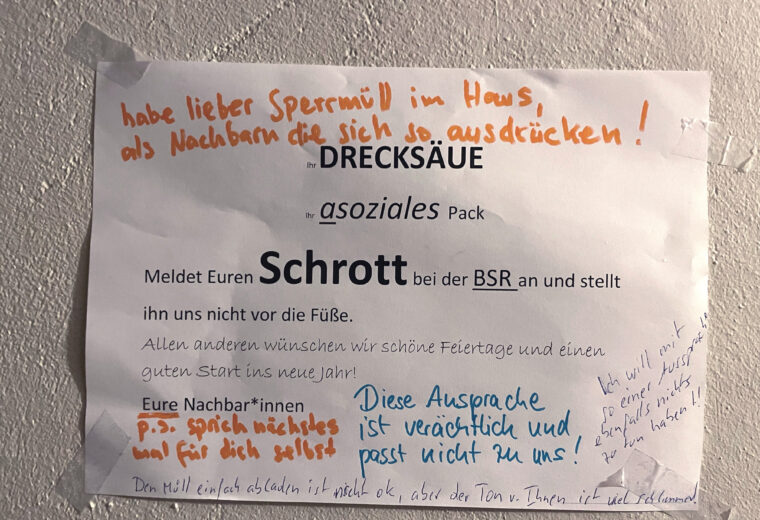 habe lieber Sperrmüll im Haus,
als Nachbarn die sich so ausdrücken!
Ihr DRECKSÄUE
Ihr asoziales Pack
Meldet Euren Schrott bei der BSR an und stellt
ihn uns nicht vor die Füße.
Allen anderen wünschen wir schöne Feiertage und einen
guten Start ins neue Jahr!
Eure Nachbar*innen
p.s. sprich nächstes
mal für dich selbst
Diese Ansprache
ist verächtlich und
passt nicht zu uns!
Ich will mit
so einer Aussprache
ebenfalls nichts
zu tun haben!!
Den Müll einfach abladen ist nicht ok, aber der Ton v. Ihnen ist viel schlimmer!